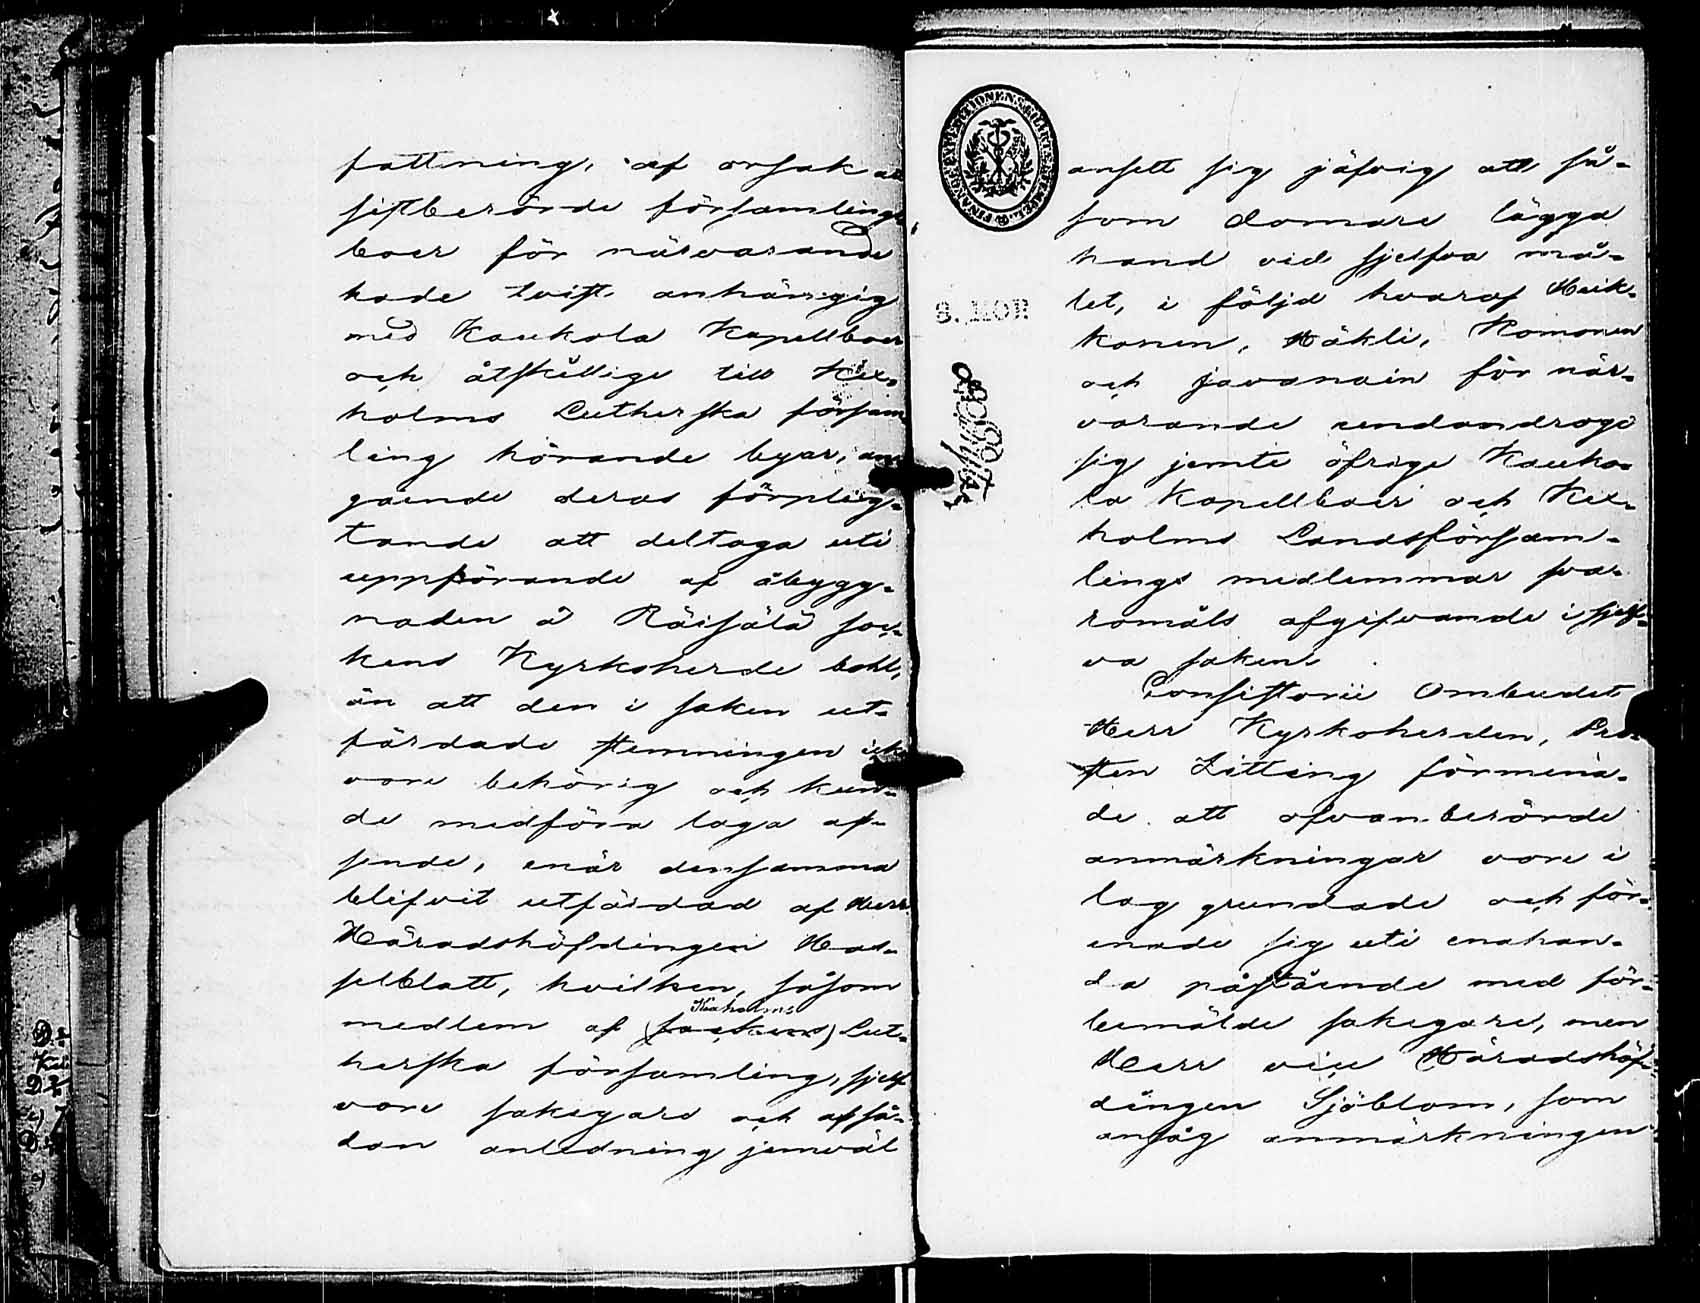 fattning, af orsak att
sistberörde församlings
boer för närvarande
hade tvist anhängig
med Kaukola Kapellboer
och åtskillige till Kex-
holms Lutherska försam-
ling hörande byar, an-
gående deras förplig-
tande att deltaga uti
uppförande af åbygg-
naden å Räisälä soc-
kens Kyrkoherde bohl,
än att den i saken ut-
färdade stemningen icke
vore behörig och kun-
de medföra laga af-
seende, enär densamma
blifvit utfärdad af Herr
Häradshöfdingen Has-
selblatt, hvilken, såsom
Kexholms
medlem af (socknens) Lut-
herska församling, sjelf
vore sakegare och af så-
dan anledning jemväl
FINANCE EXPEDITIONENS CHARTÆ STEMPEL
8. KOP.
ansett sig jäfvig att så-
som domare lägga
hand vid sjelfva må-
let, i följd hvaraf Heik-
konen, Näkli, Komonen
och Javanain för när-
varande undandrogo
sig jemte öfrige Kauko-
la Kapellboer och Kex-
holms Landsförsam-
lings medlemmar sva-
romåls afgifvande i sjelf-
va saken.
Consistorii Ombudet
Herr Kyrkoherden, Pro-
sten Zitting förmena-
de att ofvanberörde
anmärkningar vore i
lag grundade och för-
enade sig uti enahan-
da påstående med för-
bemälde sakegare, men
Herr vice Häradshöf-
dingen Sjöblom, som
ansåg anmärkningen